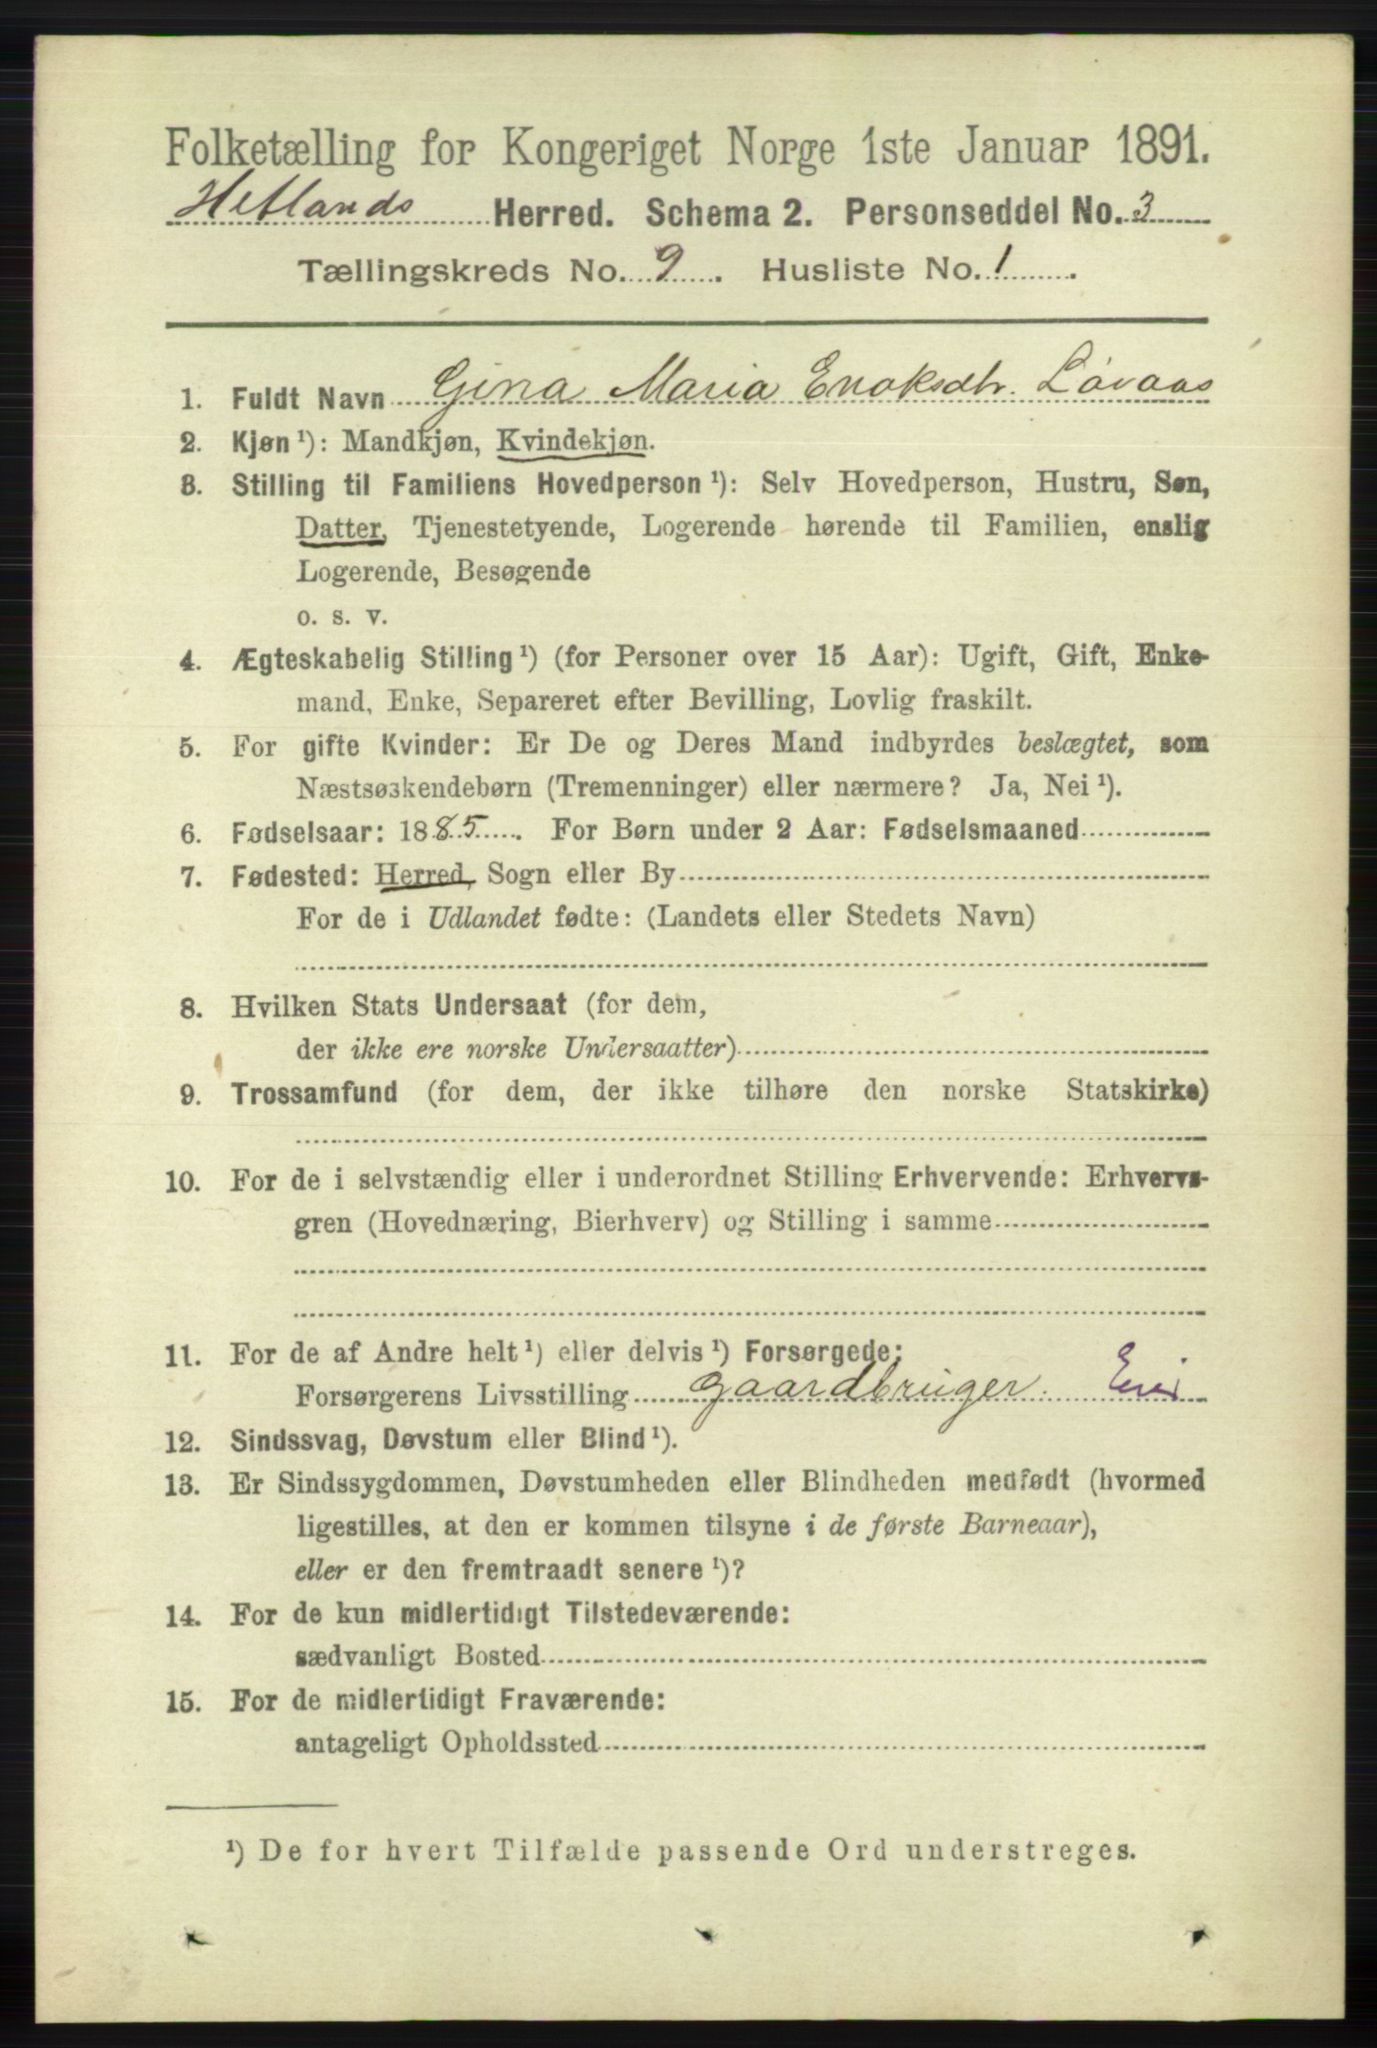 Folketælling for Kongeriget Norge 1ste Januar 1891.
Hetlands Herred. Schema 2. Personseddel No. 3
Tællingskreds No. 9. Husliste No. 1.
1. Fuldt Navn Gina Maria Enoksdtr. Lövaas
2. Kjøn ¹): Mandkjøn, Kvindekjøn.
3. Stilling til Familiens Hovedperson ¹): Selv Hovedperson, Hustru, Søn,
Datter, Tjenestetyende, Logerende hørende til Familien, enslig
Logerende, Besøgende
o. s. v.
4. Ægteskabelig Stilling ¹) (for Personer over 15 Aar): Ugift, Gift, Enke-
mand, Enke, Separeret efter Bevilling, Lovlig fraskilt.
5. For gifte Kvinder: Er De og Deres Mand indbyrdes beslægtet, som
Næstsøskendebørn (Tremenninger) eller nærmere? Ja, Nei ¹).
6. Fødselsaar: 1885. For Børn under 2 Aar: Fødselsmaaned
7. Fødested: Herred, Sogn eller By
For de i Udlandet fødte: (Landets eller Stedets Navn)
8. Hvilken Stats Undersaat (for dem,
der ikke ere norske Undersaatter)
9. Trossamfund (for dem, der ikke tilhøre den norske Statskirke)
10. For de i selvstændig eller i underordnet Stilling Erhvervende: Erhvervs-
gren (Hovednæring, Bierhverv) og Stilling i samme
11. For de af Andre helt ¹) eller delvis ¹) Forsørgede:
Forsørgerens Livsstilling gaardbruger.
12. Sindssvag, Døvstum eller Blind ¹).
13. Er Sindssygdommen, Døvstumheden eller Blindheden medfødt (hvormed
ligestilles, at den er kommen tilsyne i de første Barneaar),
eller er den fremtraadt senere ¹)?
14. For de kun midlertidigt Tilstedeværende:
sædvanligt Bosted
15. For de midlertidigt Fraværende:
antageligt Opholdssted
¹) De for hvert Tilfælde passende Ord understreges.